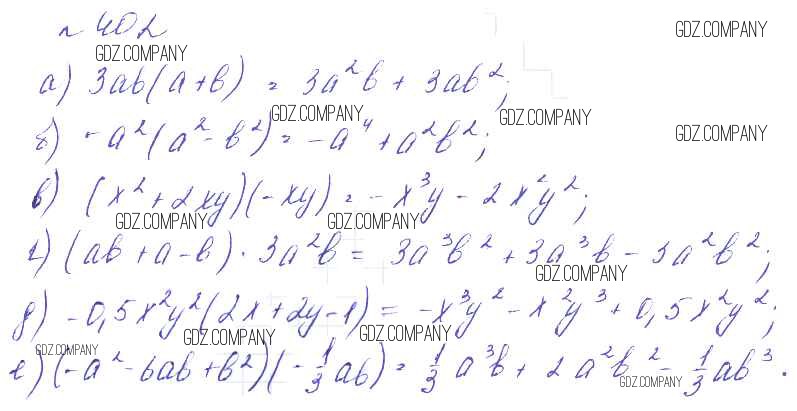 № 402
GDZ.COMPANY
GDZ.COMPANY
а) 3ab(a+b) = 3a²b + 3ab²;
GDZ.COMPANY
GDZ.COMPANY
б) -a²(a²-b²) = -a⁴ + a²b²;
GDZ.COMPANY
в) (x²+2xy)(-xy) = -x³y - 2x²y²;
GDZ.COMPANY
GDZ.COMPANY
г) (ab+a-b)·3a²b = 3a³b² + 3a³b - 3a²b²;
GDZ.COMPANY
д) -0,5x²y²(2x+2y-1) = -x³y² - x²y³ + 0,5x²y²;
GDZ.COMPANY
GDZ.COMPANY
GDZ.COMPANY
е) (-a²-6ab+b²)(-1/3ab) = 1/3a³b + 2a²b² - 1/3ab³.
GDZ.COMPANY